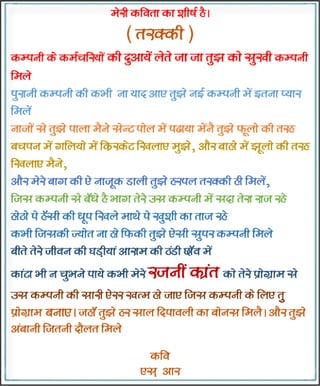 मेरी कविता का शीर्ष है।
( तरक्की )
कम्पनी के कर्मचरियों की दुआयें लेते जा जा तुझ को सुखी कम्पनी
मिले
पुरानी कम्पनी की कभी ना याद आए तुझे नई कम्पनी में इतना प्यार
मिलें
नाजों से तुझे पाला मैने सेन्ट पोल में पढाया मेंनें तुझे फूलो की तरह
बचपन में गलियों में किरकेट खिलाए मुझे, और बाहो में झूलो की तरह
खिलाए मैने,
और मेरे बाग की ऐ नाजूक डाली तुझे हरपल तरक्की ही मिलें,
जिस कम्पनी से बँधे है भाग तेरे उस कम्पनी में सदा तेरा राज रहे
होठो पे हँसी की धूप खिले माथे पे खुशी का ताज रहे
कभी जिसकी ज्योत ना हो फिकी तुझे ऐसी सुपर कम्पनी मिले
बीते तेरे जीवन की घडीयां आराम की ठंडी छाँव में
कांटा भी न चुभने पाये कभी मेरे रजनीं कांत को तेरे प्रोग्राम से
उस कम्पनी की सारी ऐरर खत्म हो जाए जिस कम्पनी के लिए तु
प्रोग्राम बनाए। जहाँ तुझे हर साल दिपावली का बोनस मिले। और तुझे
अंबानी जितनी दौलत मिले
कवि
एस् आर